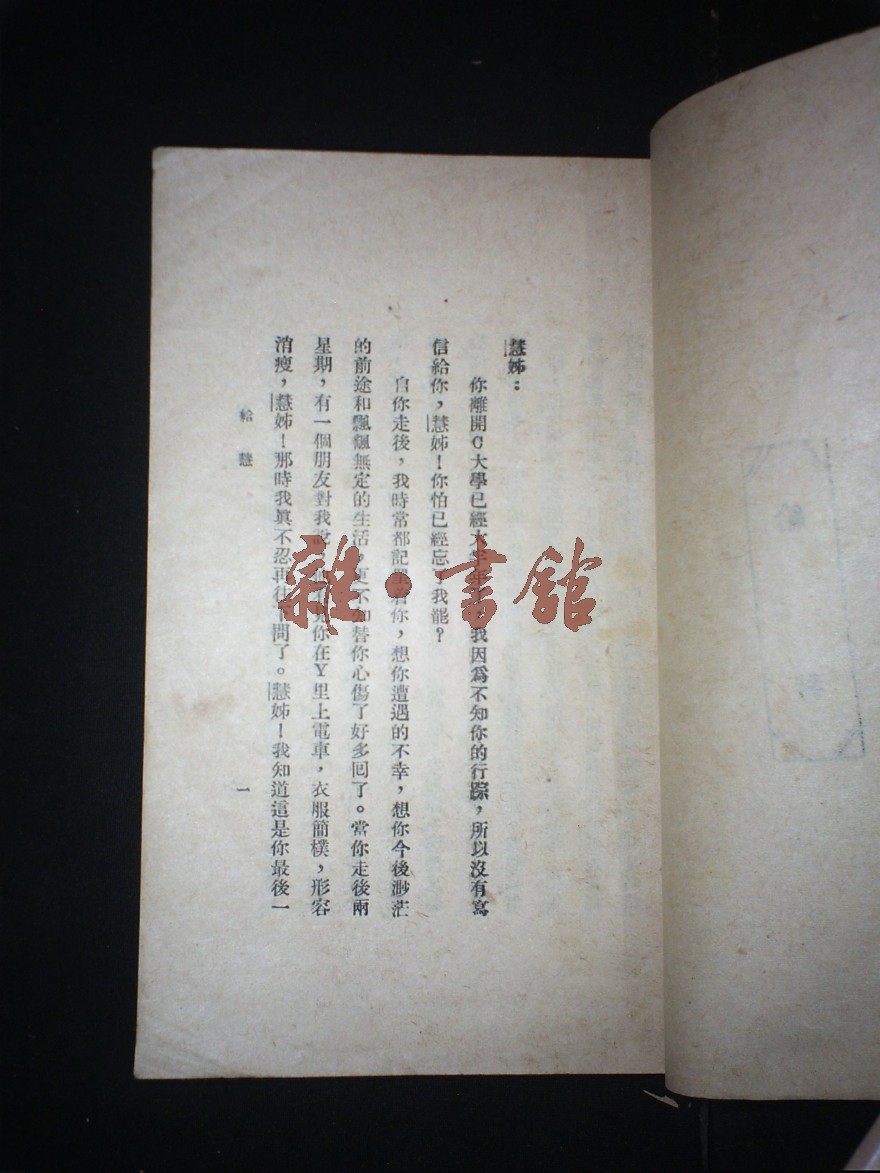 慧姊：
你離開C大學已經大半年了，我因爲不知你的行踪，所以沒有寫
信給你，慧姊！你怕已經忘了我罷？
自你走後，我時常都記罣着你，想你遭遇的不幸，想你今後渺茫
的前途和飄飄無定的生活，更不知替你心傷了好多囘了。當你走後兩
星期，有一個朋友對我說，他見你在Y里上電車，衣服簡樸，形容
消瘦，慧姊！那時我眞不忍再往下問了。慧姊！我知道這是你最後一
給慧
一
雜·書館